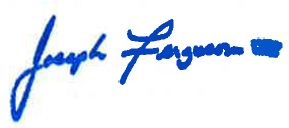 Joseph Ferguson